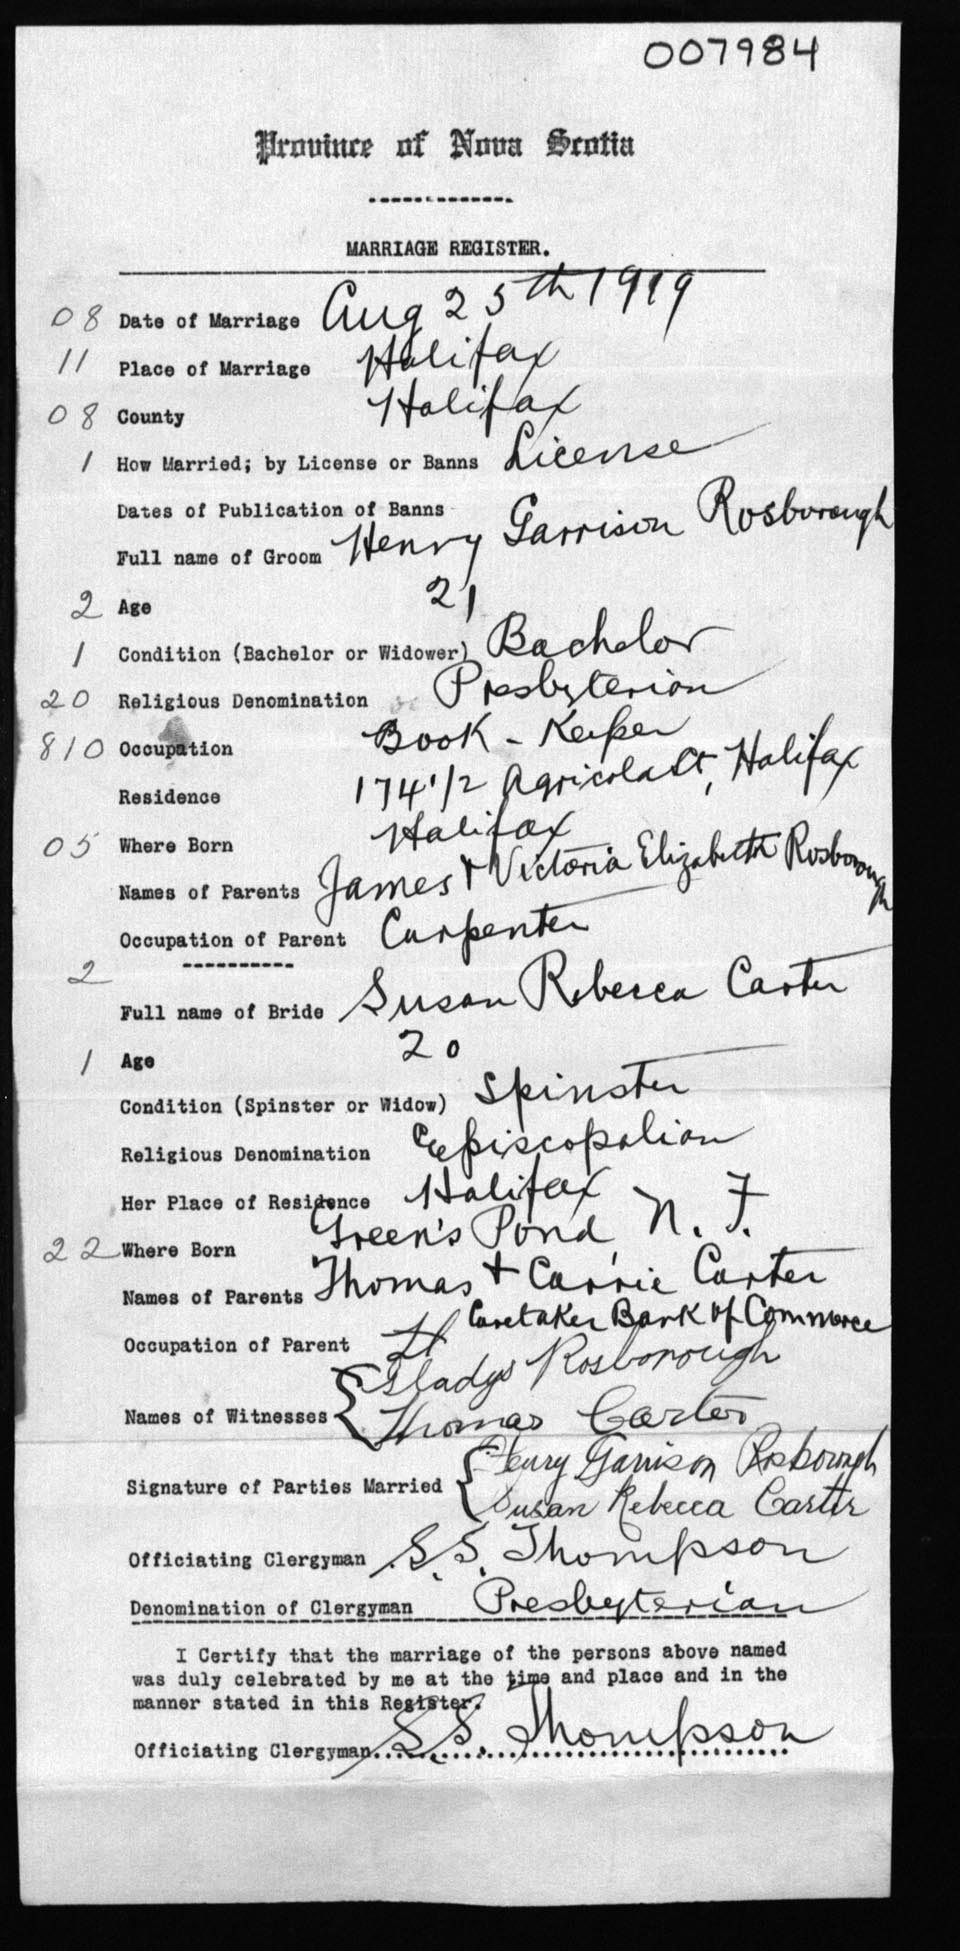 007984
Province of Nova Scotia
MARRIAGE REGISTER.
08 Date of Marriage Aug 25th 1919
11 Place of Marriage Halifax
08 County Halifax
1 How Married; by License or Banns License
Dates of Publication of Banns
Full name of Groom Henry Garrison Rosborough
2 Age 21
1 Condition (Bachelor or Widower) Bachelor
20 Religious Denomination Presbyterian
810 Occupation Book-Keeper
Residence 174 1/2 Agricola St, Halifax
05 Where Born Halifax
Names of Parents James + Victoria Elizabeth Rosborough
Occupation of Parent Carpenter
----------
2 Full name of Bride Susan Rebecca Carter
1 Age 20
Condition (Spinster or Widow) Spinster
Religious Denomination Episcopalian
Her Place of Residence Halifax
22 Where Born Green's Pond, N.F.
Names of Parents Thomas + Carrie Carter
Occupation of Parent Caretaker Bank of Commerce
Names of Witnesses { Gladys Rosborough
Thomas Carter
Signature of Parties Married { Henry Garrison Rosborough
Susan Rebecca Carter
Officiating Clergyman S.S. Thompson
Denomination of Clergyman Presbyterian
I Certify that the marriage of the persons above named
was duly celebrated by me at the time and place and in the
manner stated in this Register.
Officiating Clergyman S.S. Thompson